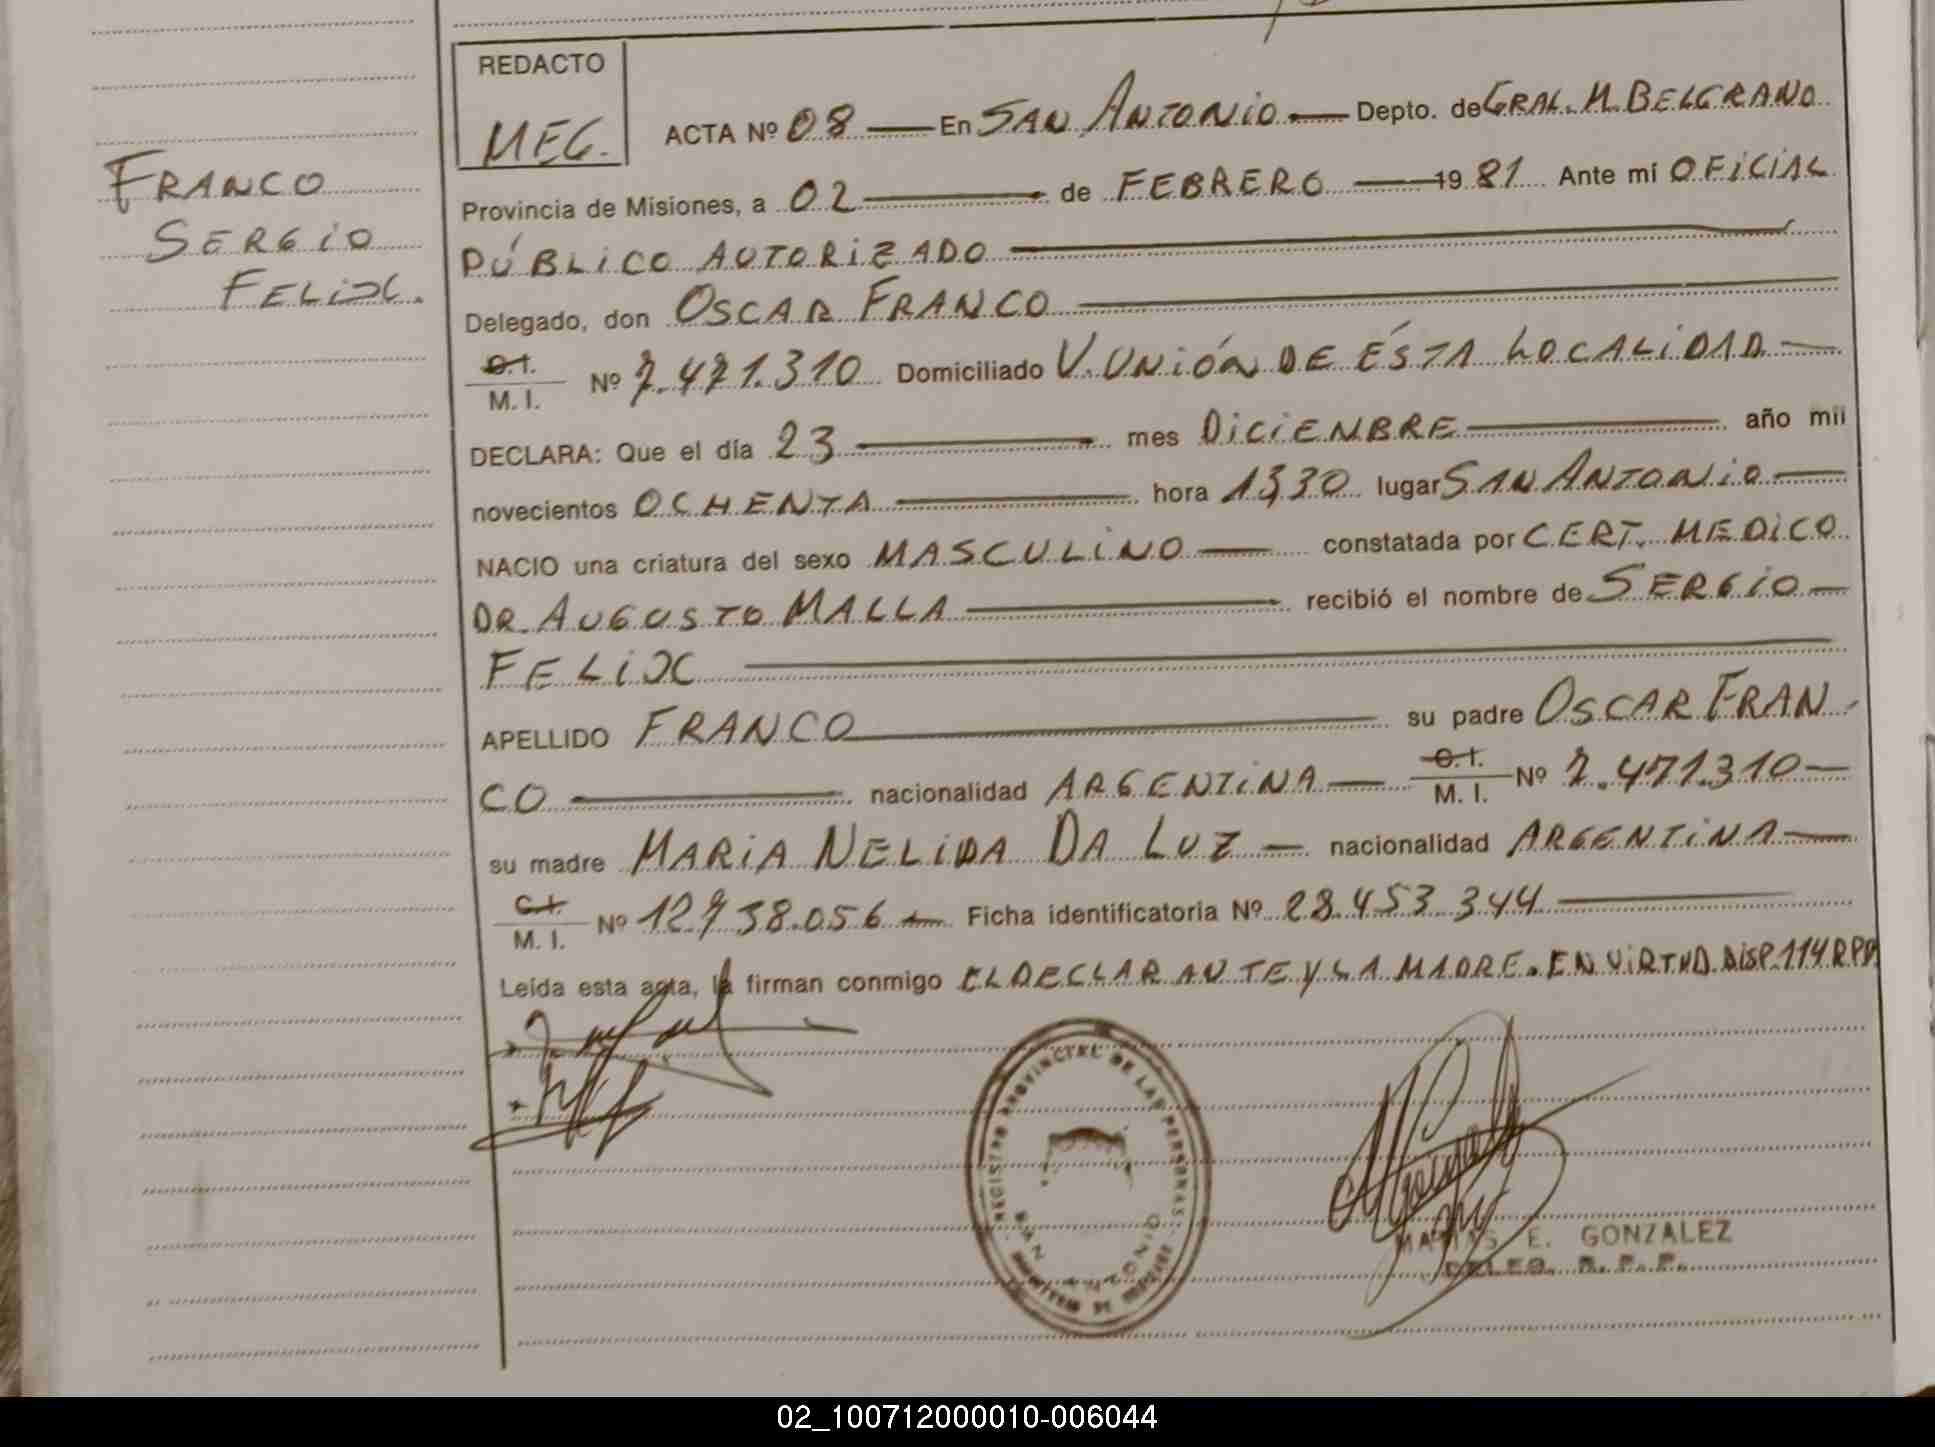 REDACTO
MEG.
ACTA Nº 08 — En SAN ANTONIO — Depto. de GRAL. M. BELGRANO
FRANCO
SERGIO
FELIX.
Provincia de Misiones, a 02 — de FEBRERO — 1981 Ante mí OFICIAL
PÚBLICO AUTORIZADO
Delegado, don OSCAR FRANCO
C.I.
M. I. Nº 7.471.310 Domiciliado V. UNIÓN DE ÉSTA LOCALIDAD —
DECLARA: Que el día 23 — mes DICIEMBRE — año mil
novecientos OCHENTA — hora 13,30 lugar SAN ANTONIO —
NACIO una criatura del sexo MASCULINO — constatada por CERT. MEDICO
DR. AUGUSTO MALLA — recibió el nombre de SERGIO —
FELIX —
APELLIDO FRANCO — su padre OSCAR FRAN-
CO — nacionalidad ARGENTINA — C.I. M. I. Nº 7.471.310 —
su madre MARIA NELIDA DA LUZ — nacionalidad ARGENTINA —
C.I.
M. I. Nº 12.738.056 — Ficha identificatoria Nº 28.453.344 —
Leída esta acta, la firman conmigo EL DECLARANTE Y LA MADRE. EN VIRTUD. DISP. 114 R.P.P.
REGISTRO PROVINCIAL DE LAS PERSONAS
SAN ANTONIO
MATIAS E. GONZALEZ
DELEG. R. P. P.
02_100712000010-006044